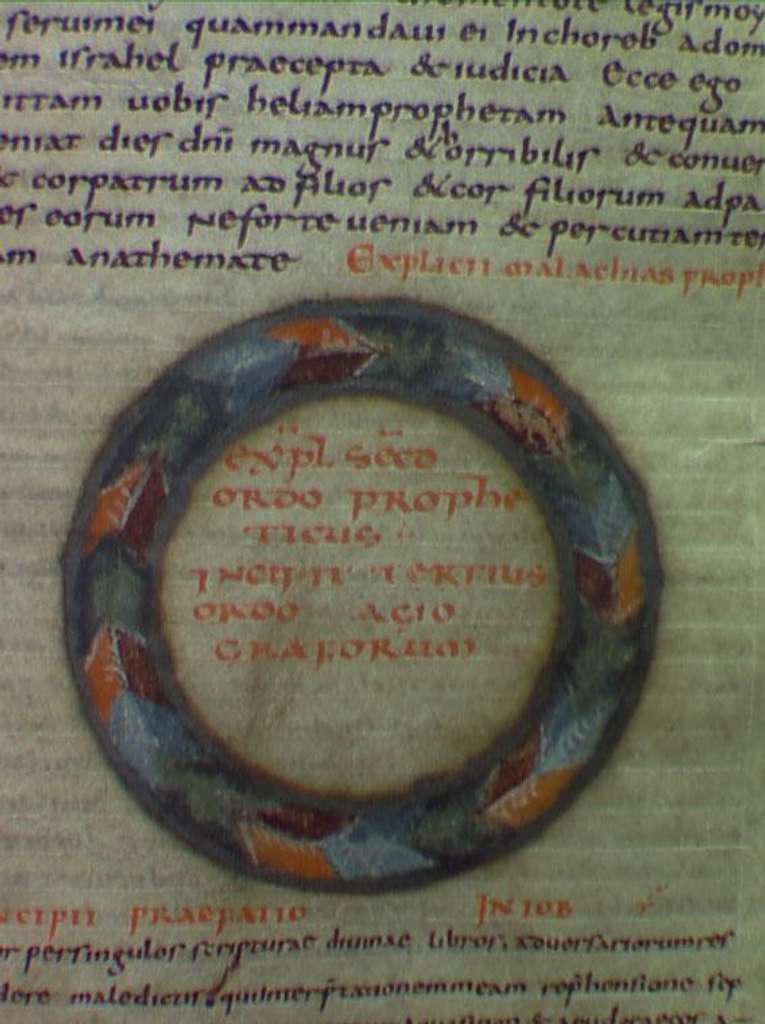 legis moy
seruimei quammandaui ei Inchoreb adom
em israhel praecepta &iudicia Ecce ego
ittam uobis heliamprophetam Antequam
eniat dies dnī magnus &horribilis &conuer
& corpatrum ad filios &cor filiorum adpa
es eorum Neforte ueniam & percutiamter
am anathemate Explicit malachias proph
expl. Secd
ordo prophe
ticus
Incipit tertius
ordo agio
graforum
ncipit praefatio In iob
or persingulos scripturae diuinae libros, aduersariorumres
dere maledictis. quiinterp̄tationemmeam rep̄hensione sep